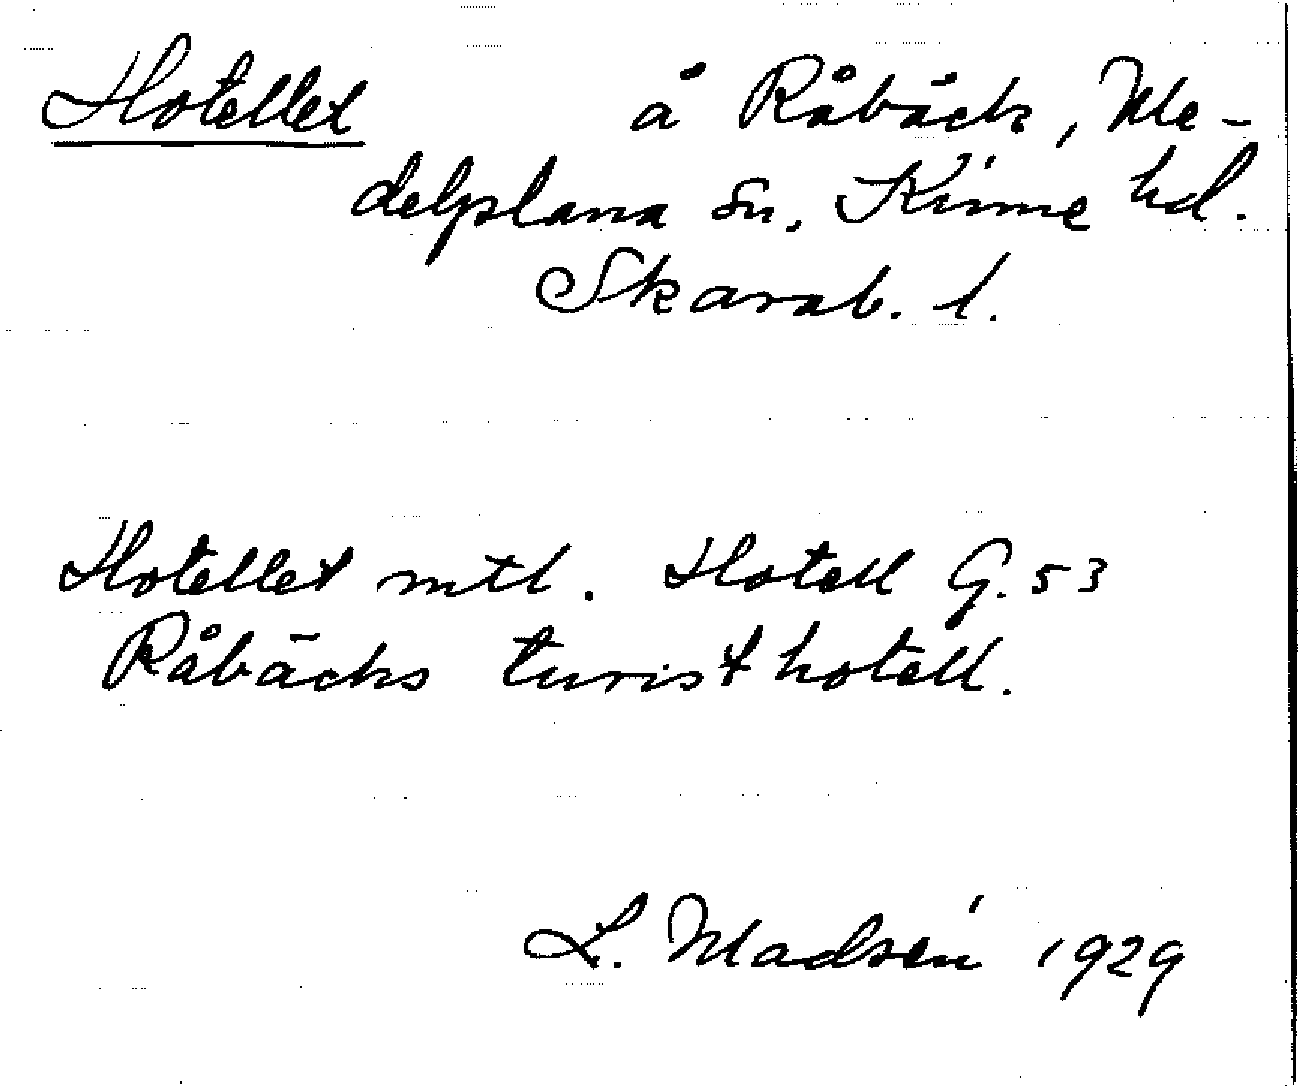 Hotellet å Råbäck, Me-
delplana sn. Kinne hd.
Skarab. l.
Hotellet mtl. Hotell G. 53
Råbäcks turisthotell.
L. Madsén 1929